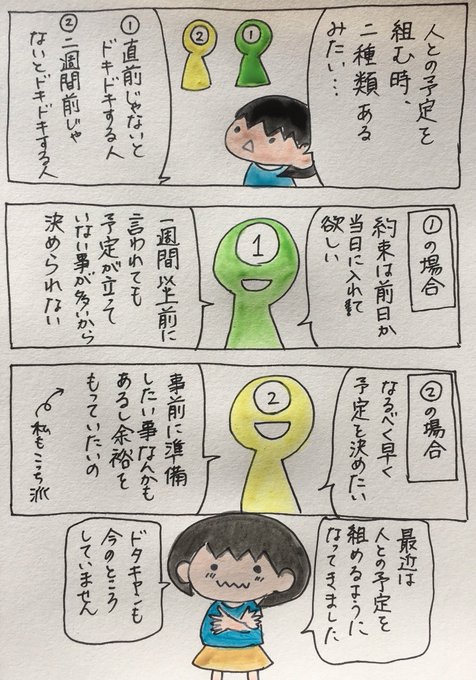 人との予定を
組む時、
二種類ある
みたい…
①
②
①直前じゃないと
ドキドキする人
②二週間前じゃ
ないとドキドキする人
①の場合
約束は前日か
当日に入れて
欲しい
1
一週間以上前に
言われても
予定が立って
いない事が多いから
決められない
②の場合
なるべく早く
予定を決めたい
2
事前に準備
したい事なんかも
あるし余裕を
もっていたいの
私もこっち派
最近は
人との予定を
組めるように
なってきました
ドタキャンも
今のところ
していません